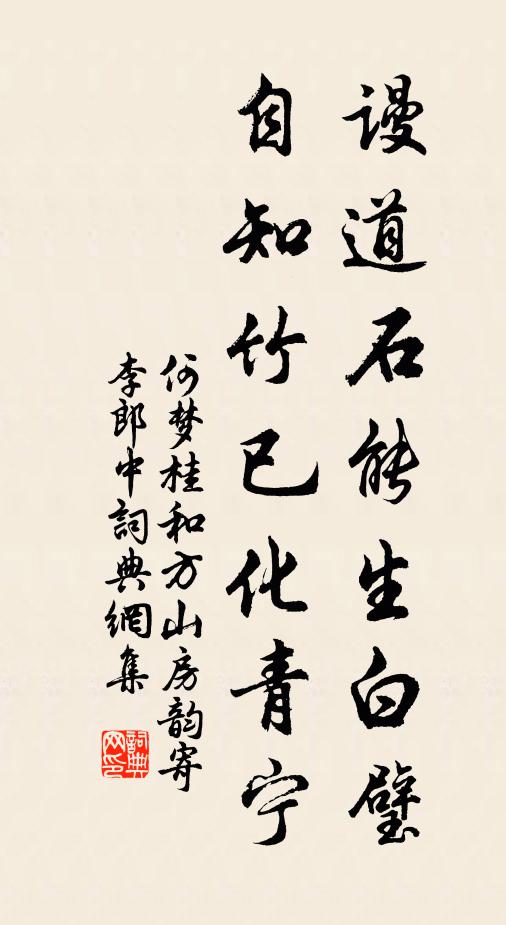 謾道石能生白璧
自知竹已化青宁
何梦桂和方山房韵寄
李郎中詞典網集
詞典
网印